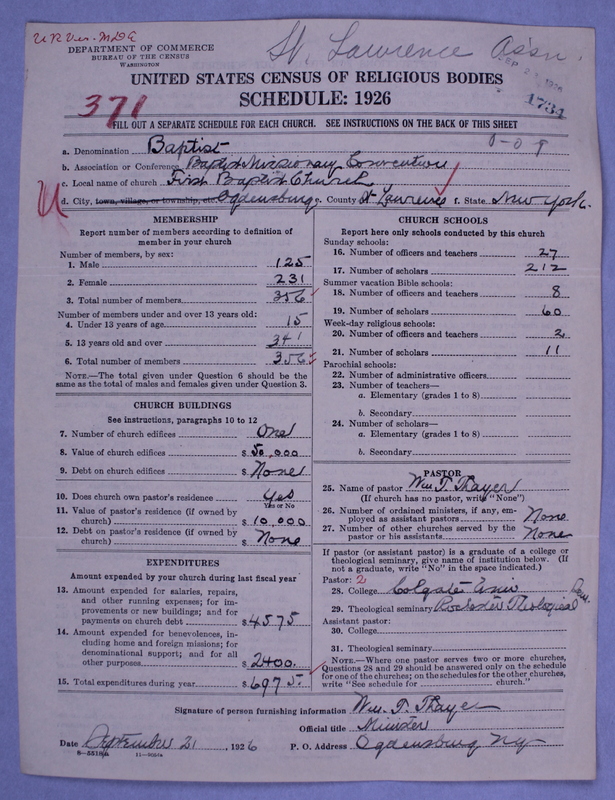 U.R. Ver. M.D.E
DEPARTMENT OF COMMERCE
BUREAU OF THE CENSUS
WASHINGTON
St. Lawrence Ass'n.
UNITED STATES CENSUS OF RELIGIOUS BODIES
SCHEDULE: 1926
1734
371
FILL OUT A SEPARATE SCHEDULE FOR EACH CHURCH. SEE INSTRUCTIONS ON THE BACK OF THIS SHEET
0-0 9
a. Denomination Baptist
b. Association or Conference Baptist Missionary Convention
c. Local name of church First Baptist Church
d. City, town, village, or township, etc. Ogdensburg e. County St. Lawrence f. State New York.
U
MEMBERSHIP
Report number of members according to definition of
member in your church
Number of members, by sex:
1. Male 125
2. Female 231
3. Total number of members 356
Number of members under and over 13 years old:
4. Under 13 years of age 15
5. 13 years old and over 341
6. Total number of members 356
NOTE.—The total given under Question 6 should be the
same as the total of males and females given under Question 3.
CHURCH BUILDINGS
See instructions, paragraphs 10 to 12
7. Number of church edifices One
8. Value of church edifices $ 50,000
9. Debt on church edifices $ None
10. Does church own pastor's residence Yes
Yes or No
11. Value of pastor's residence (if owned by
church) $ 10,000
12. Debt on pastor's residence (if owned by
church) $ None
EXPENDITURES
Amount expended by your church during last fiscal year
13. Amount expended for salaries, repairs,
and other running expenses; for im-
provements or new buildings; and for
payments on church debt $ 4575
14. Amount expended for benevolences, in-
cluding home and foreign missions; for
denominational support; and for all
other purposes $ 2400.
15. Total expenditures during year $ 6975.
CHURCH SCHOOLS
Report here only schools conducted by this church
Sunday schools:
16. Number of officers and teachers 27
17. Number of scholars 212
Summer vacation Bible schools:
18. Number of officers and teachers 8
19. Number of scholars 60
Week-day religious schools:
20. Number of officers and teachers 2
21. Number of scholars 11
Parochial schools:
22. Number of administrative officers
23. Number of teachers—
a. Elementary (grades 1 to 8)
b. Secondary
24. Number of scholars—
a. Elementary (grades 1 to 8)
b. Secondary
PASTOR
25. Name of pastor Wm. T. Thayer
(If church has no pastor, write "None")
26. Number of ordained ministers, if any, em-
ployed as assistant pastors None
27. Number of other churches served by the
pastor or his assistants None
If pastor (or assistant pastor) is a graduate of a college or
theological seminary, give name of institution below. (If
not a graduate, write "No" in the space indicated.)
Pastor: 2
28. College Colgate Univ
29. Theological seminary Rochester Theological Sem.
Assistant pastor:
30. College
31. Theological seminary
NOTE.—Where one pastor serves two or more churches,
Questions 28 and 29 should be answered only on the schedule
for one of the churches; on the schedules for the other churches,
write "See schedule for church."
Signature of person furnishing information Wm. T. Thayer
Official title Minister
Date September 21, 1926 P. O. Address Ogdensburg NY